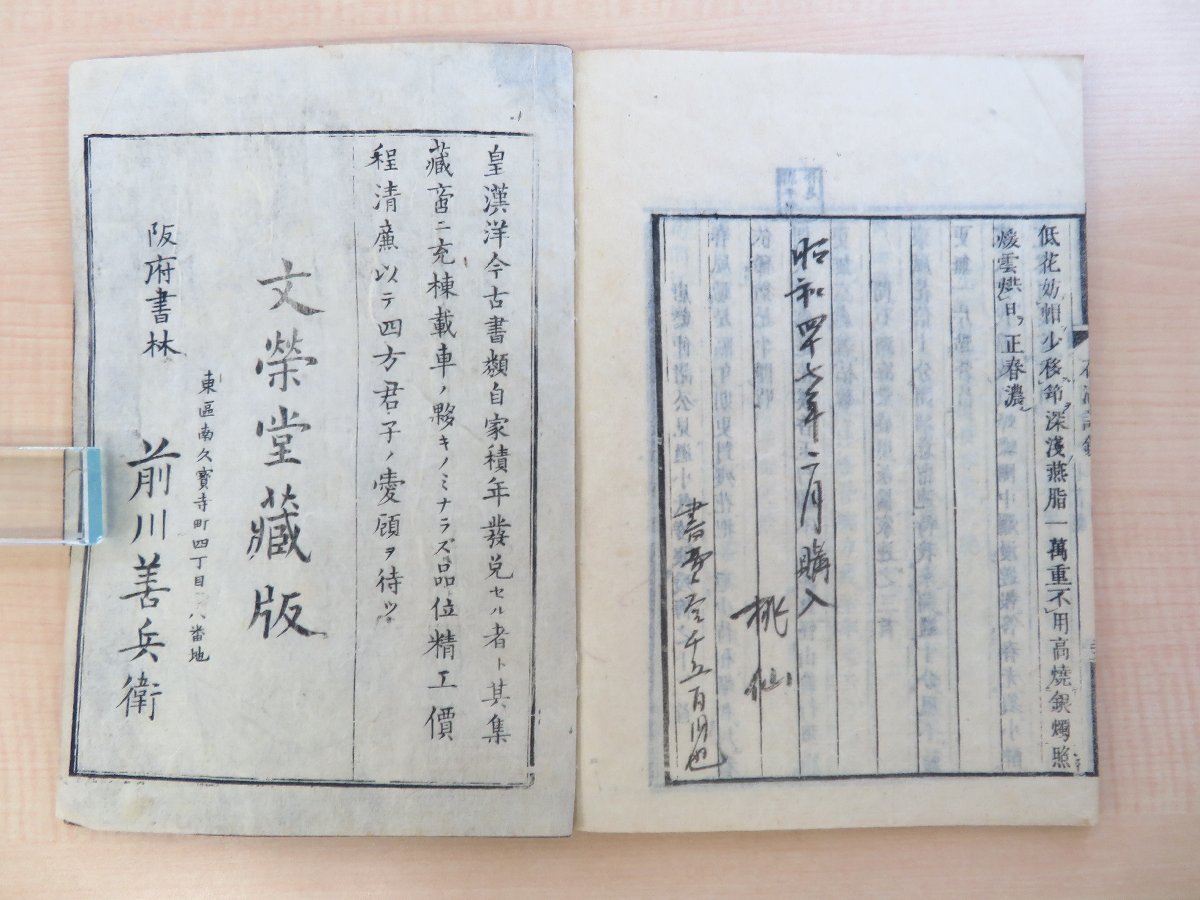 低花妨帽少移節深淺燕脂一萬重不用高燒銀燭照
煖雲烘日正春濃
昭和四十七年二月購入
桃仙
皇漢洋今古書類自家積年發兌セル者ト其集
藏啻ニ充棟載車ノ夥キノミナラズ品位精工價
程清廉以テ四方君子ノ愛顧ヲ待ツ
文榮堂藏版
東區南久寶寺町四丁目八番地
阪府書林 前川善兵衛